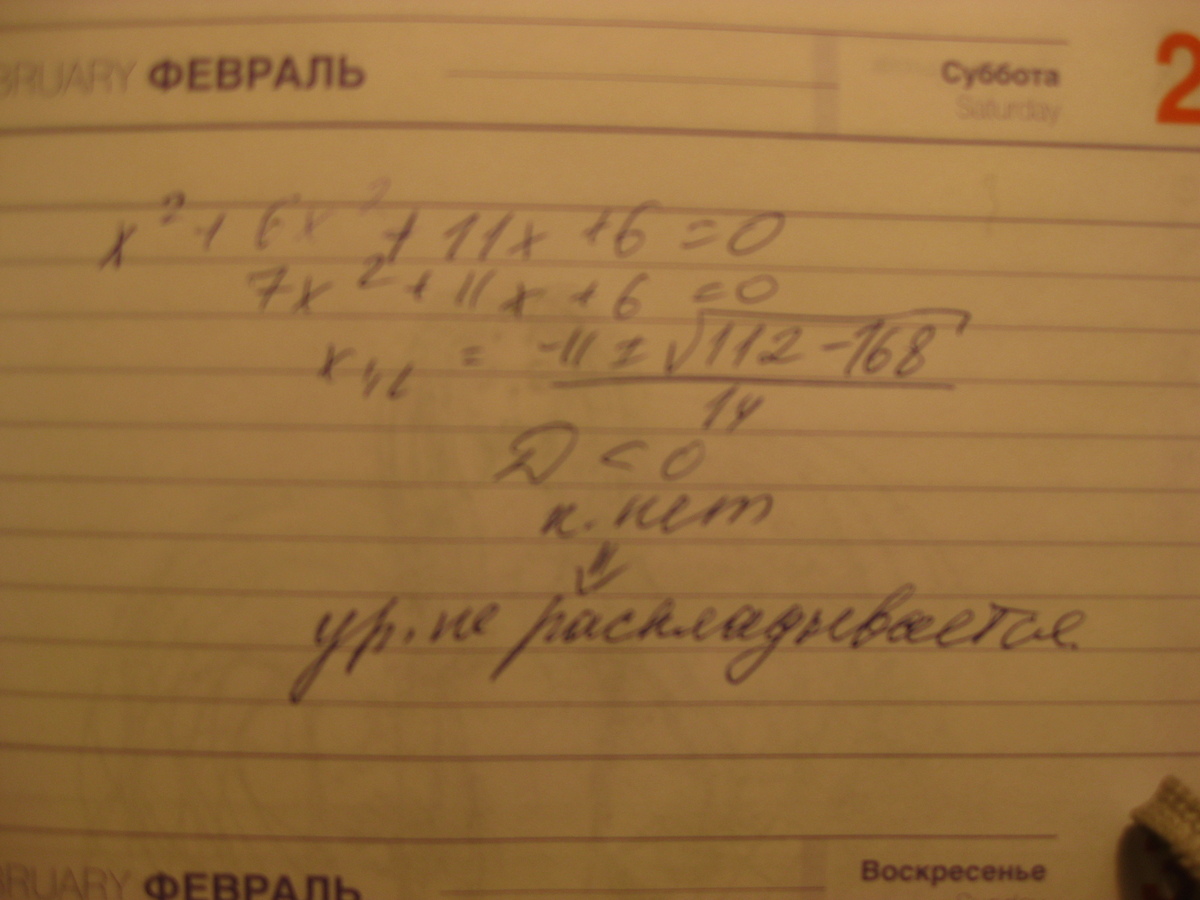 BRUARY ФЕВРАЛЬ
Суббота
Saturday
2
x² + 6x² + 11x + 6 = 0
7x² + 11x + 6 = 0
x₁,₂ = -11 ± √112 - 168
14
D < 0
к. нет
⇓
ур. не раскладывается.
BRUARY ФЕВРАЛЬ
Воскресенье